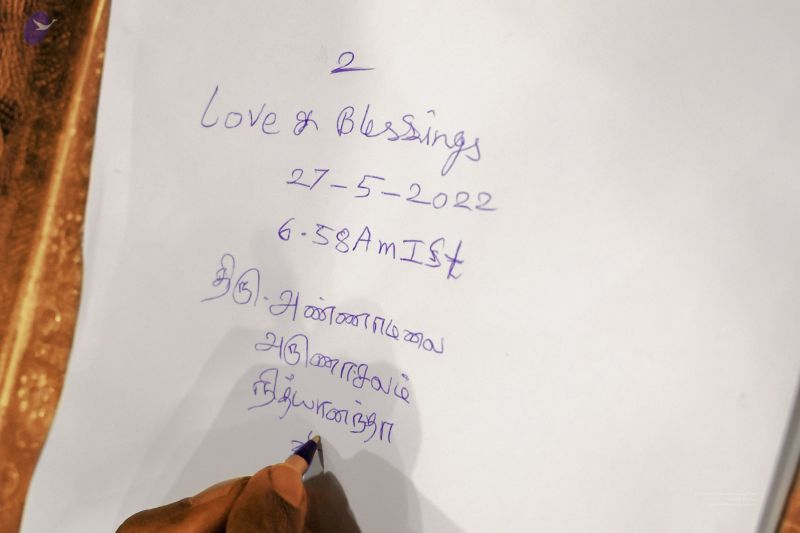 2
Love & Blessings
27-5-2022
6.58AmISt
திரு.அண்ணாமலை
அருணாசலம்
நித்யானந்தா